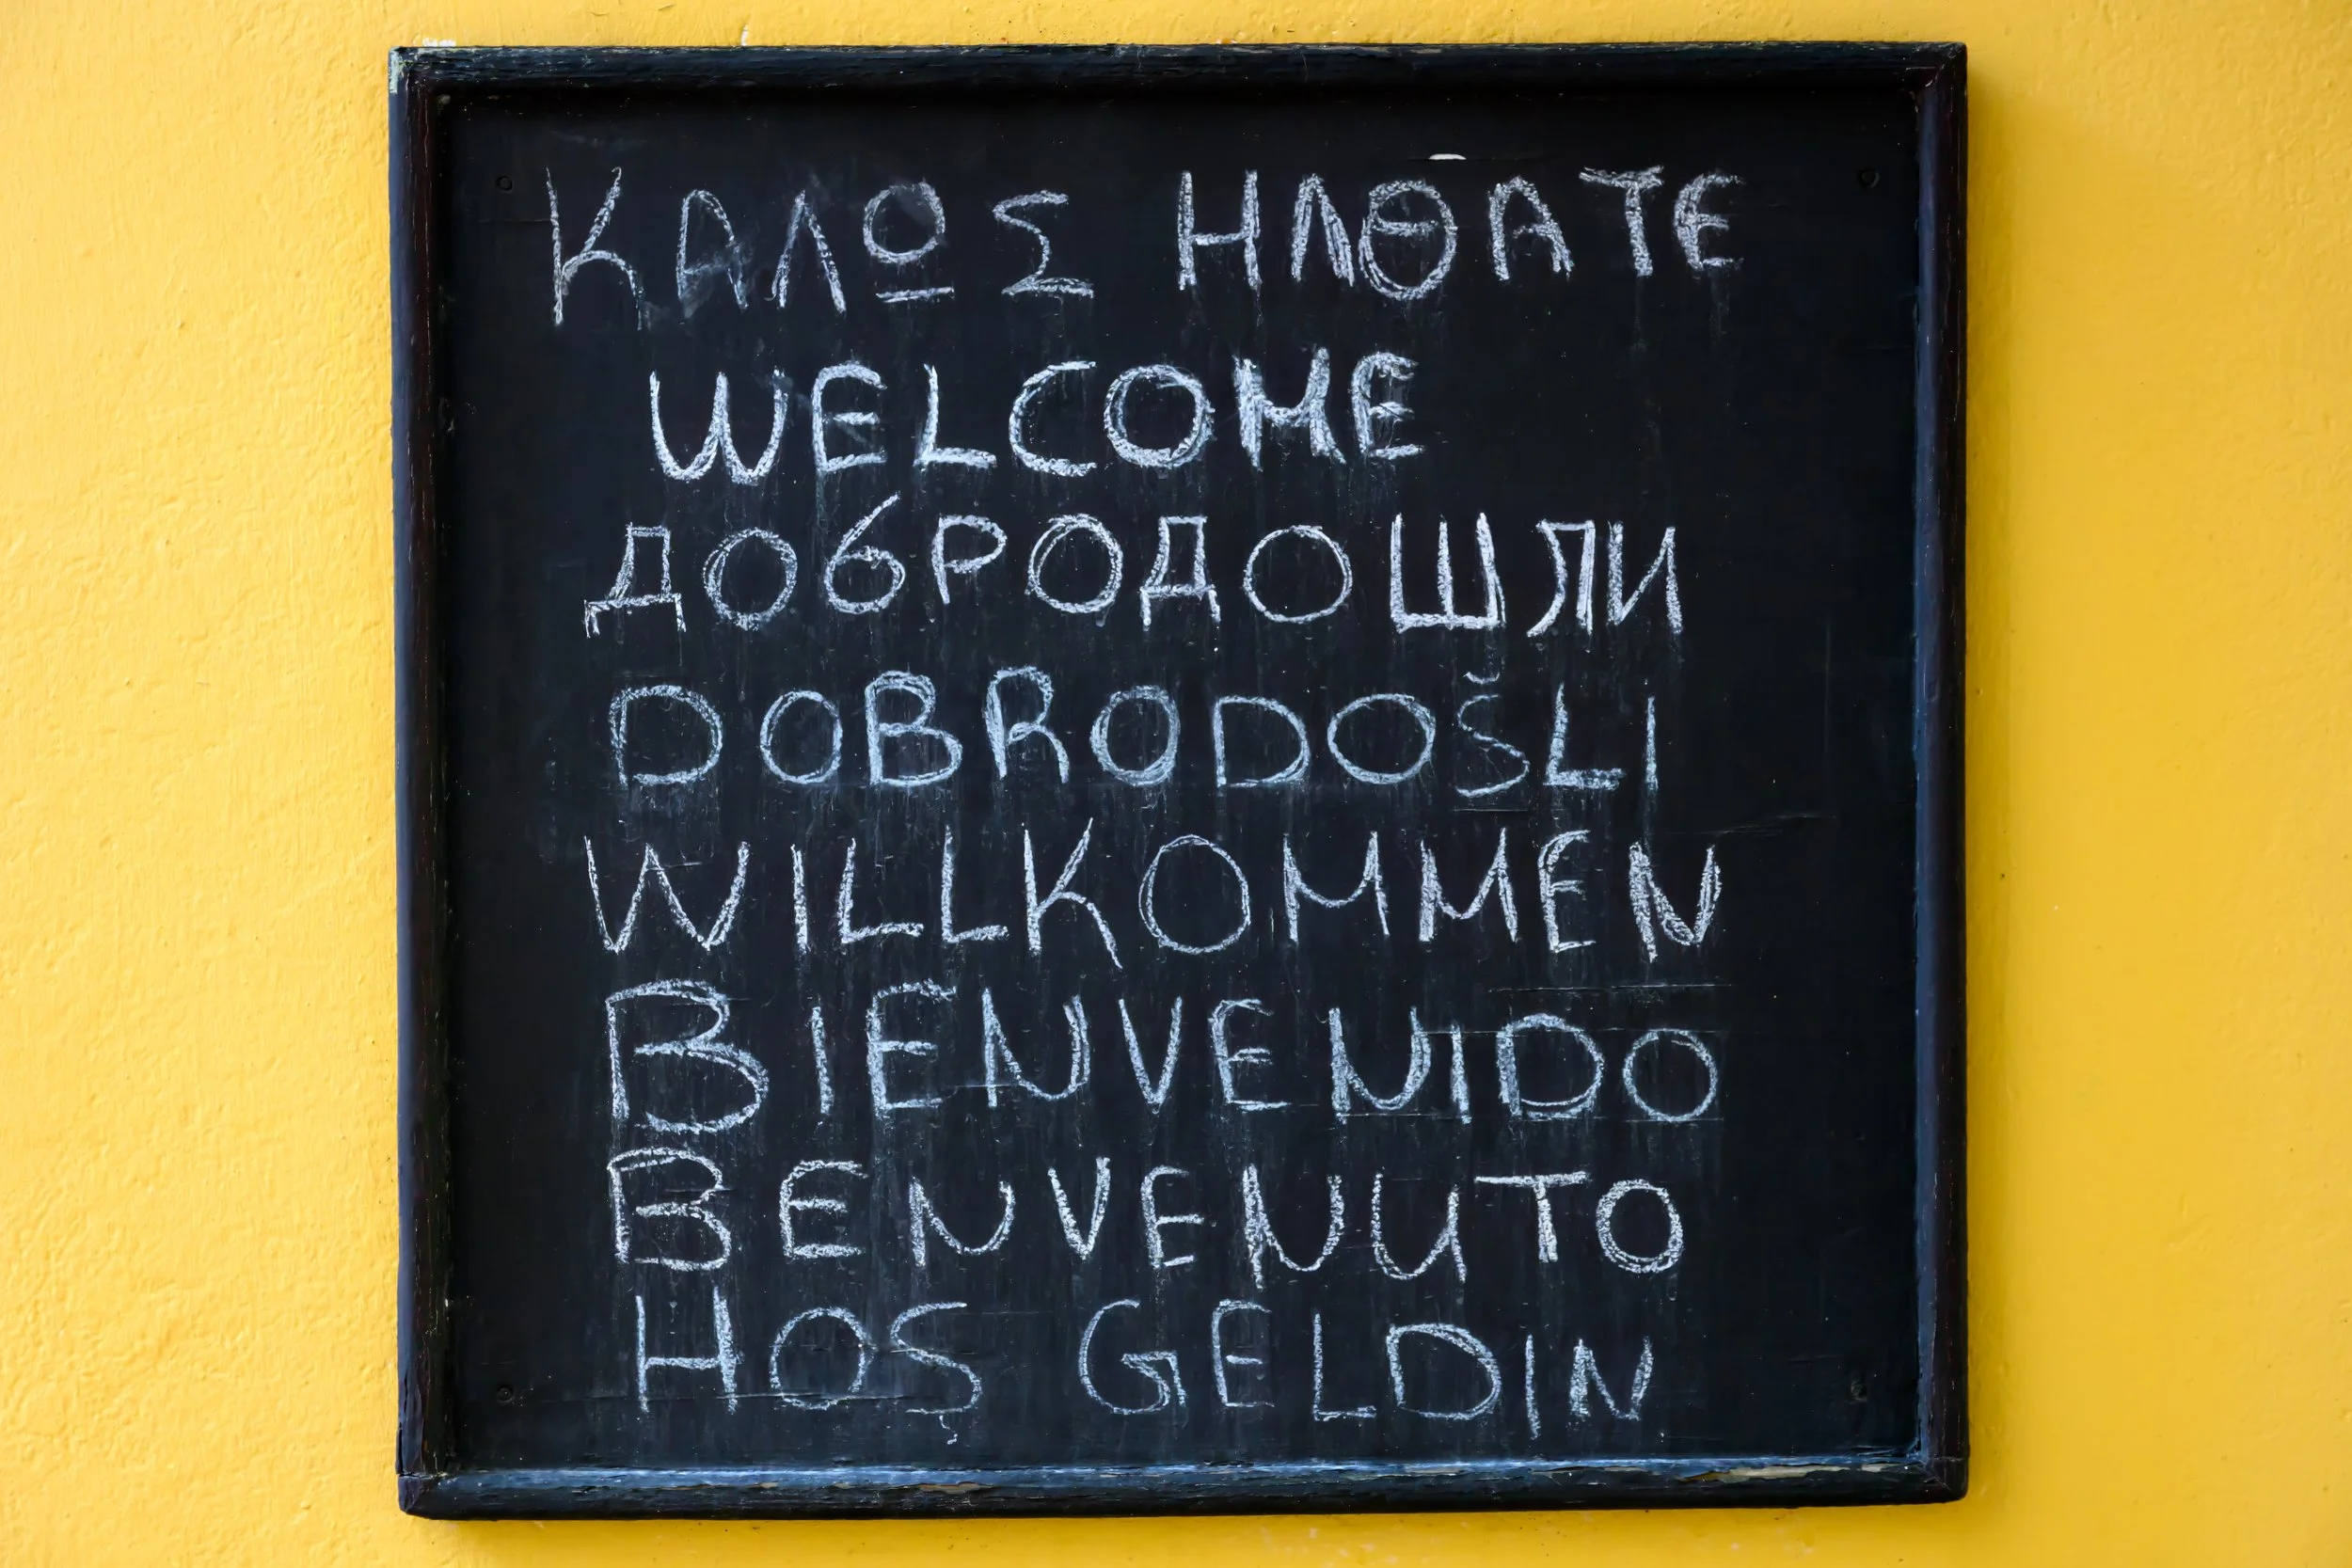 ΚΑΛΩΣ ΗΛΘΑΤΕ
WELCOME
ДОБРОДОШЛИ
DOBRODOŠLI
WILLKOMMEN
BIENVENIDO
BENVENUTO
HOŞ GELDIN